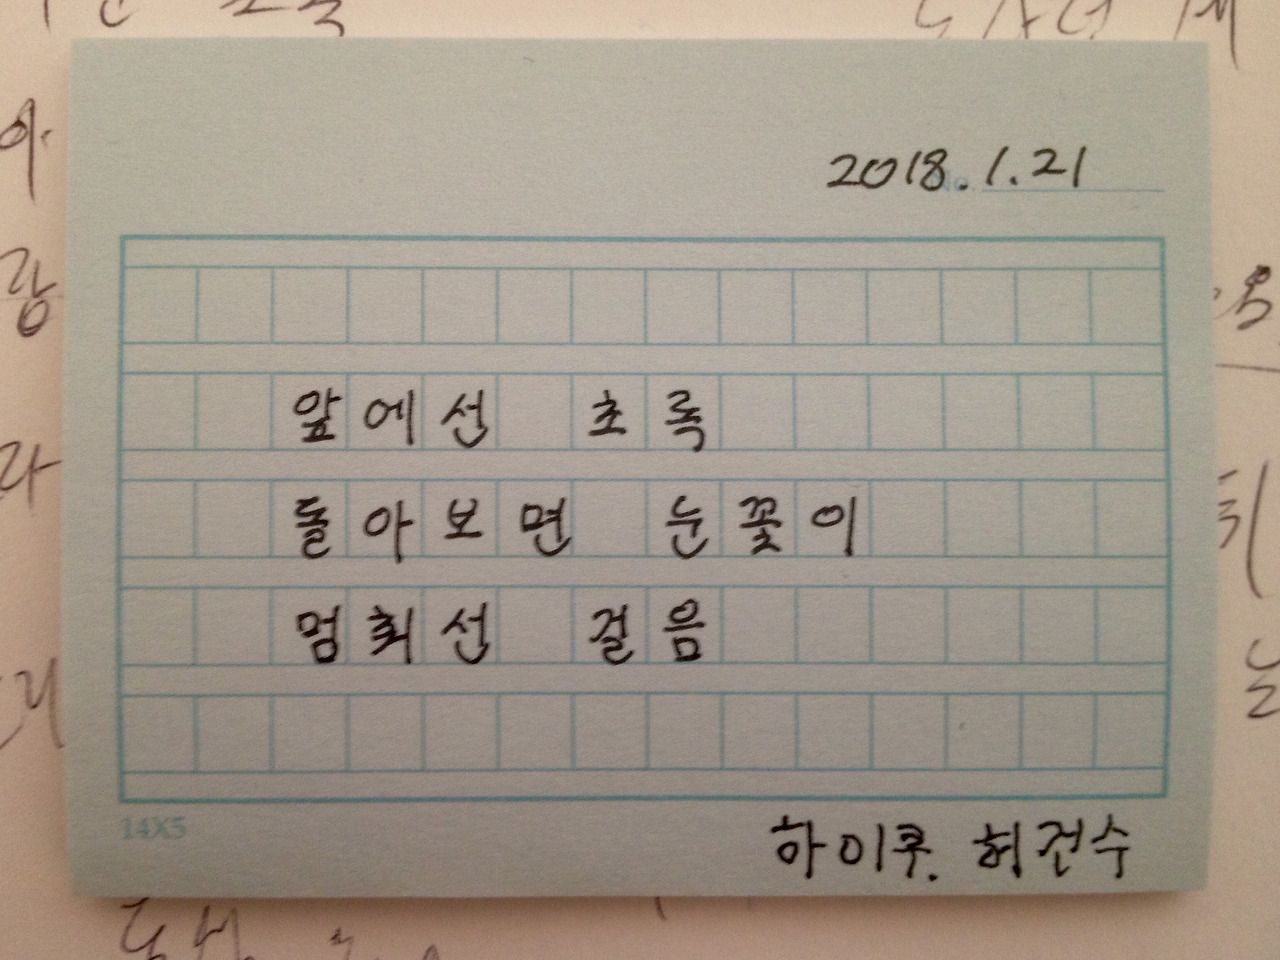 2018.1.21
No.
앞에선 초록
돌아보면 눈꽃이
멈춰선 걸음
14X5
하이쿠. 허건수